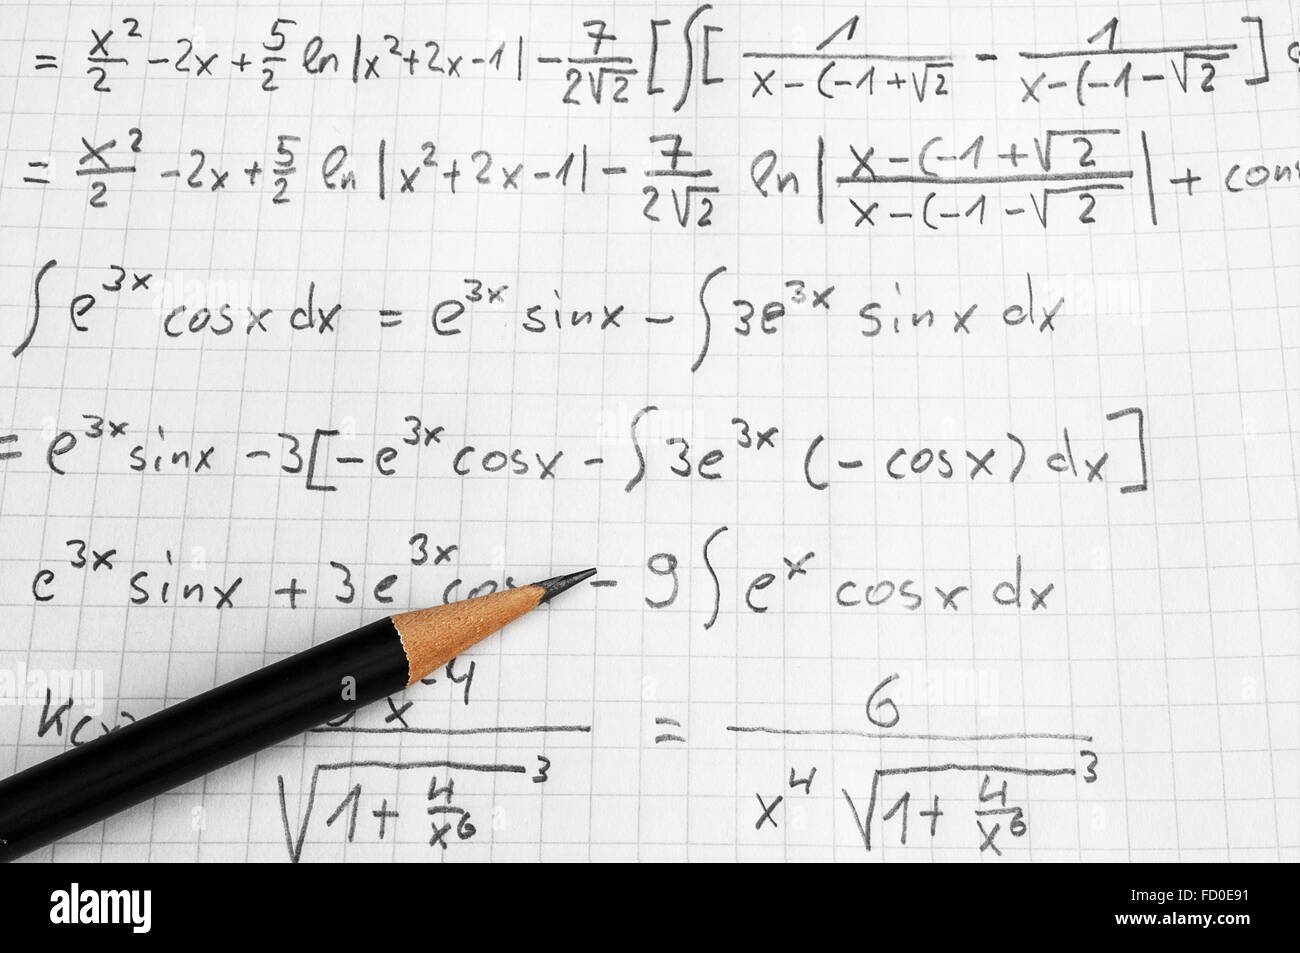 = x²/2 - 2x + 5/2 ln |x²+2x-1| - 7/(2√2) [∫[ 1/(x-(-1+√2) - 1/(x-(-1-√2) ]
= x²/2 - 2x + 5/2 ln |x²+2x-1| - 7/(2√2) ln | x-(-1+√2 / x-(-1-√2 | + con
∫ e^3x cosx dx = e^3x sinx - ∫ 3e^3x sinx dx
= e^3x sinx - 3[-e^3x cosx - ∫ 3e^3x (-cosx) dx]
e^3x sinx + 3e^3x cos - 9 ∫ e^x cosx dx
K(x x^-4 / √(1+4/x⁶)³ = 6 / (x⁴ √(1+4/x⁶)³)
alamy
Image ID: FD0E91
www.alamy.com